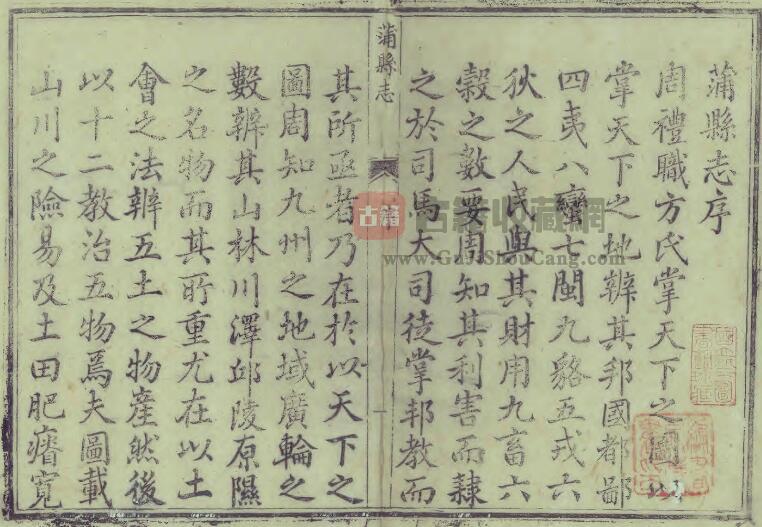 蒲縣志序
周禮職方氏掌天下之圖以
掌天下之地辨其邦國都鄙
四夷八蠻七閩九貉五戎六
狄之人民與其財用九畜六
穀之數要周知其利害而隸
之於司馬大司徒掌邦教而
蒲縣志
序
一
其所亟者乃在於以天下之
圖周知九州之地域廣輪之
數辨其山林川澤邱陵原隰
之名物而其所重尤在以土
會之法辨五土之物產然後
以十二教治五物焉夫圖載
山川之險易及土田肥瘠寬
古籍
古籍收藏網
www.GujiShouCang.com